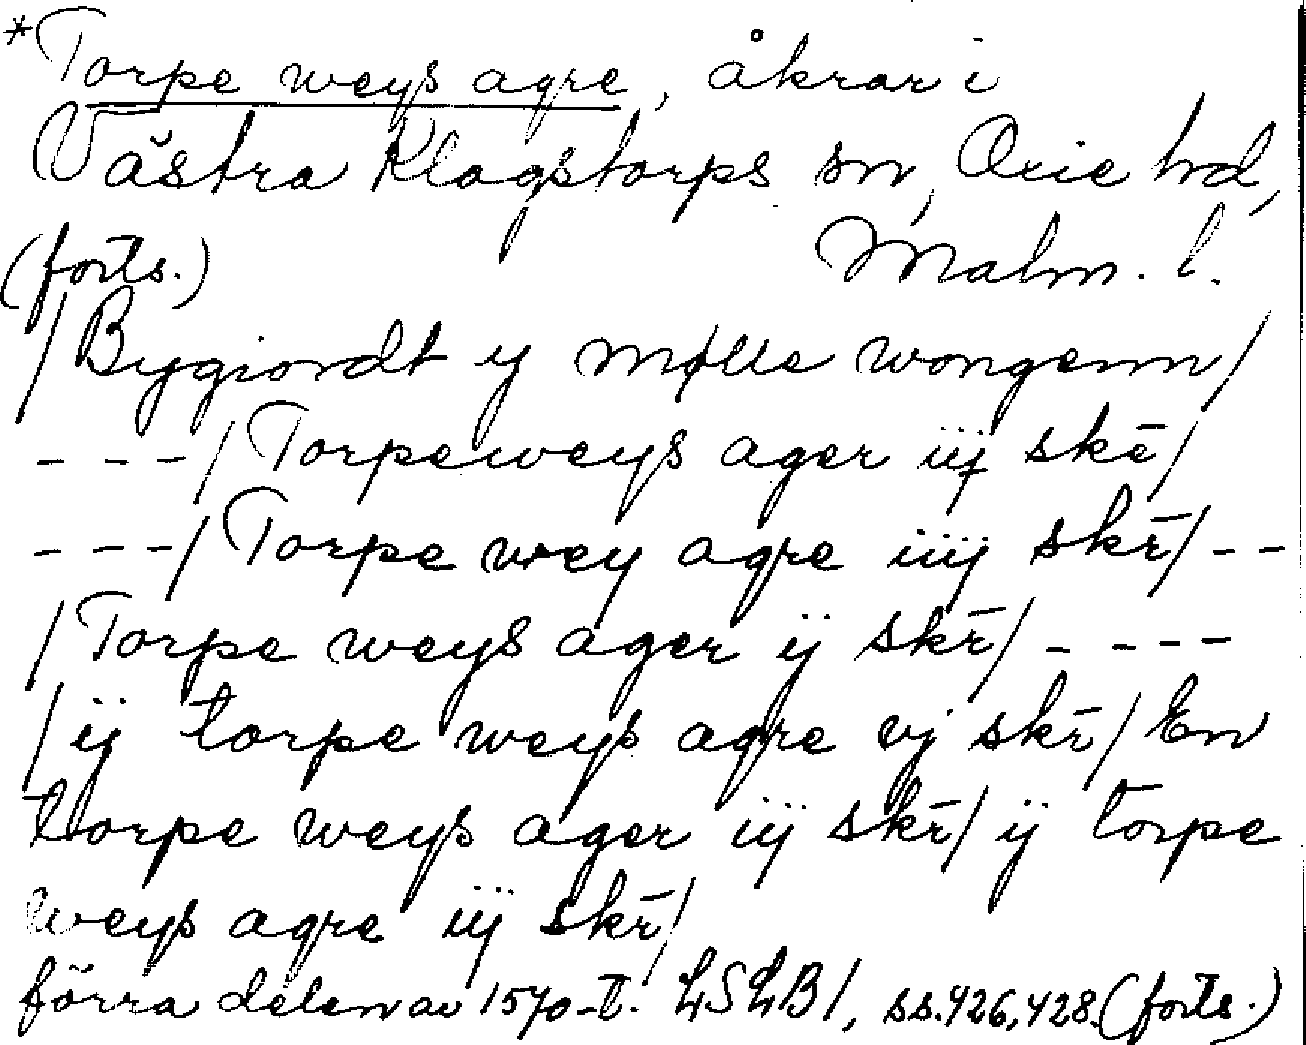 *Torpe weys agre, åkrar i
Västra Klagstorps sn, Oxie hd,
(forts.) Malm. l.
/Bygiordt ij Mølle wongenn/
- - -/Torpeweys ager iij skē/
- - -/Torpe wey agre iiij skr̄/- -
/Torpe weys ager ij skr̄/- - - -
/ij torpe weys agre vj skr̄/En
torpe weys ager iij skr̄/ij torpe
weys agre iij skr̄/
förra delen av 1570-t. LSLB1, ss. 426, 428. (forts.)